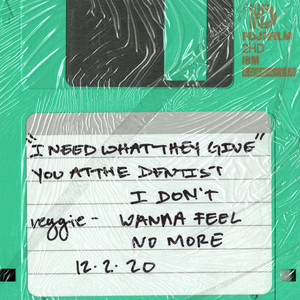 FUJIFILM
2HD
IBM
"I NEED WHAT THEY GIVE"
YOU AT THE DENTIST
I DON'T
veggie - WANNA FEEL
NO MORE
12.2.20